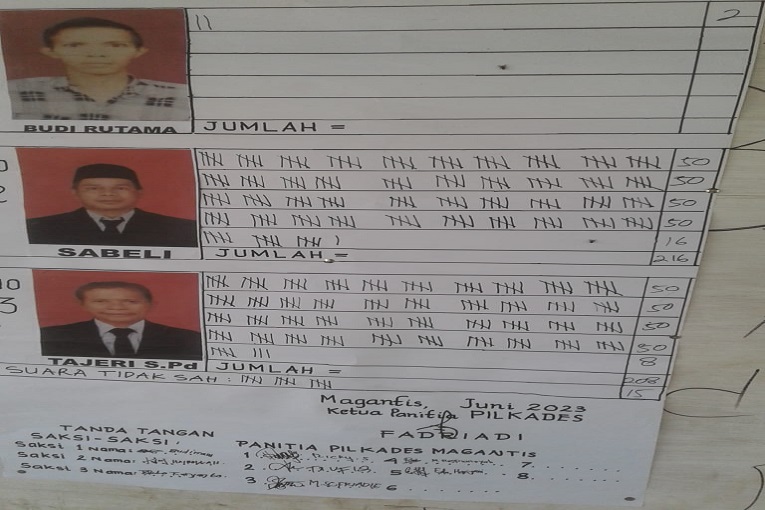 2
BUDI RUTAMA JUMLAH =
50
50
50
50
16
SABELI JUMLAH = 216
50
50
50
50
8
3
TAJERI S.Pd JUMLAH = 208
SUARA TIDAK SAH : 15
Magantis, Juni 2023
Ketua Panitia PILKADES
FADRIADI
TANDA TANGAN
SAKSI-SAKSI :
Saksi 1 Nama:
Saksi 2 Nama:
Saksi 3 Nama:
PANITIA PILKADES MAGANTIS
1 4 7.
2. 5 8.
3 6